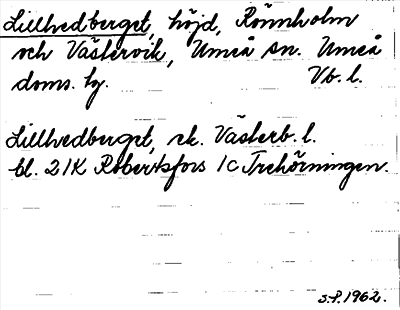 Lillhedberget, höjd, Rönnholm
och Västervik, Umeå sn. Umeå
doms. hg. Vb. l.
Lillhedberget, ek. Västerb. l.
bl. 21K Robertsfors 1C Trehörningen.
S.F. 1962.